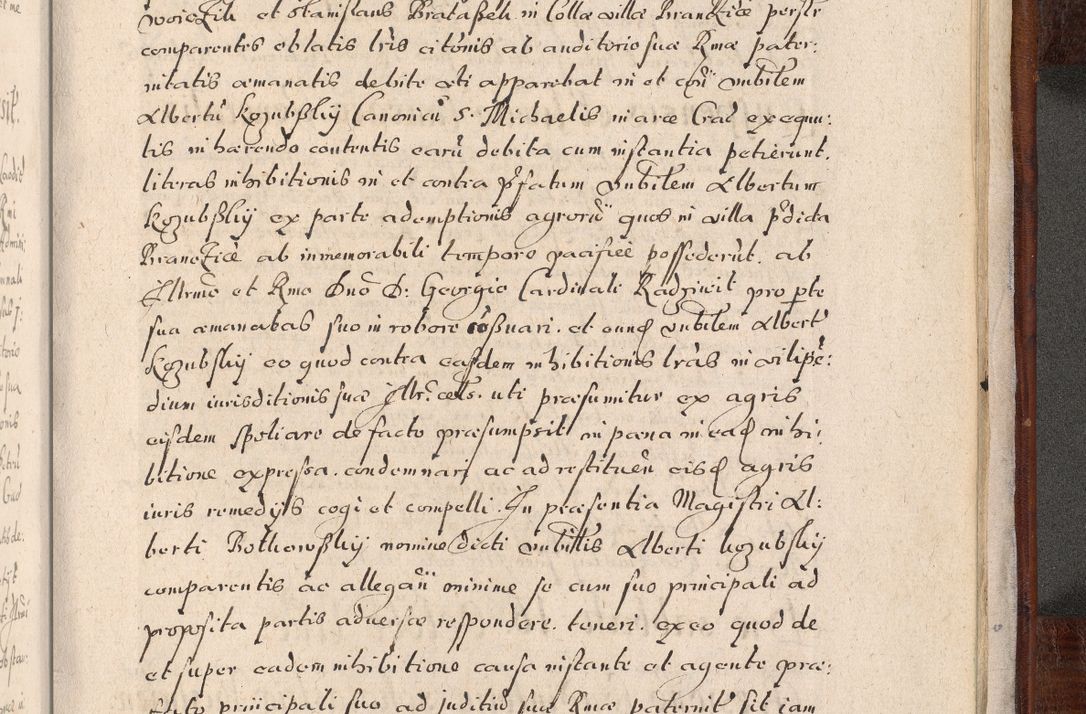 woiczik et Stanislaus Bratassek in Colla villa Kranczice persr
comparentes oblatis lris citonis ab auditorio suæ Rmæ pater:
nitatis æmanatis debite uti apparebat in et con nubilem
Albertū Kozubsskij Canonicū S. Michaelis in arce Crac exequu:
tis inhærendo contentis earū debita cum instantia petierunt.
literas inhibitionis in et contra pfatum nubilem Albertum
Kozubsskij ex parte ademptionis agrorū quos in villa pdicta
Kranczice ab inmemorabili tempore pacifice possederūt. ab
Illrmo et Rmo Dno D: Georgio Cardinale Radziwił pro pte
sua æmanabas suo in robore conssuari. et eund nubilem Albert
Kozubskij eo quod contra easdem inhibitiones lras in vilipē:
dium iurisditionis suæ Illr: cels. uti præsumitur ex agris
eisdem spoliare de facto præsumpsit in pæna in ead inhi:
bitione expressa. condemnari ac ad restituēn eisd agris
iuris remedijs cogi et compelli. In præsentia Magistri Al:
berti Bothowsskij nomine dicti nubilis Alberti kozubskij
comparentis ac allegan minime se cum suo principali ad
proposita partis adversæ respondere. teneri. ex eo quod de
et super eadem inhibitione causa instante et agente præ:
fato principali suo ad juditiū suæ Rmæ paternit sit iam